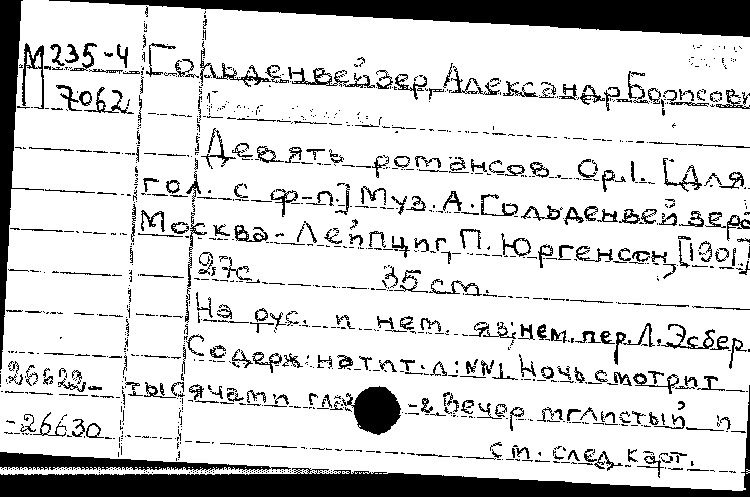 М 235-4 Гольденвейзер, Александр Борисови
7062
Девять романсов. Op.1. [Для
гол. с ф-п.] Муз. А. Гольденвейзера
Москва - Лейпциг, П. Юргенсон, [1901]
27с. 35 cm.
На рус. и нем. яз; нем. пер. Л. Эсбер.
Содерж: на тит. л: NN1. Ночь смотрит
26622- тысячами глаз -2. Вечер мглистый и
-26630
см. след. карт.